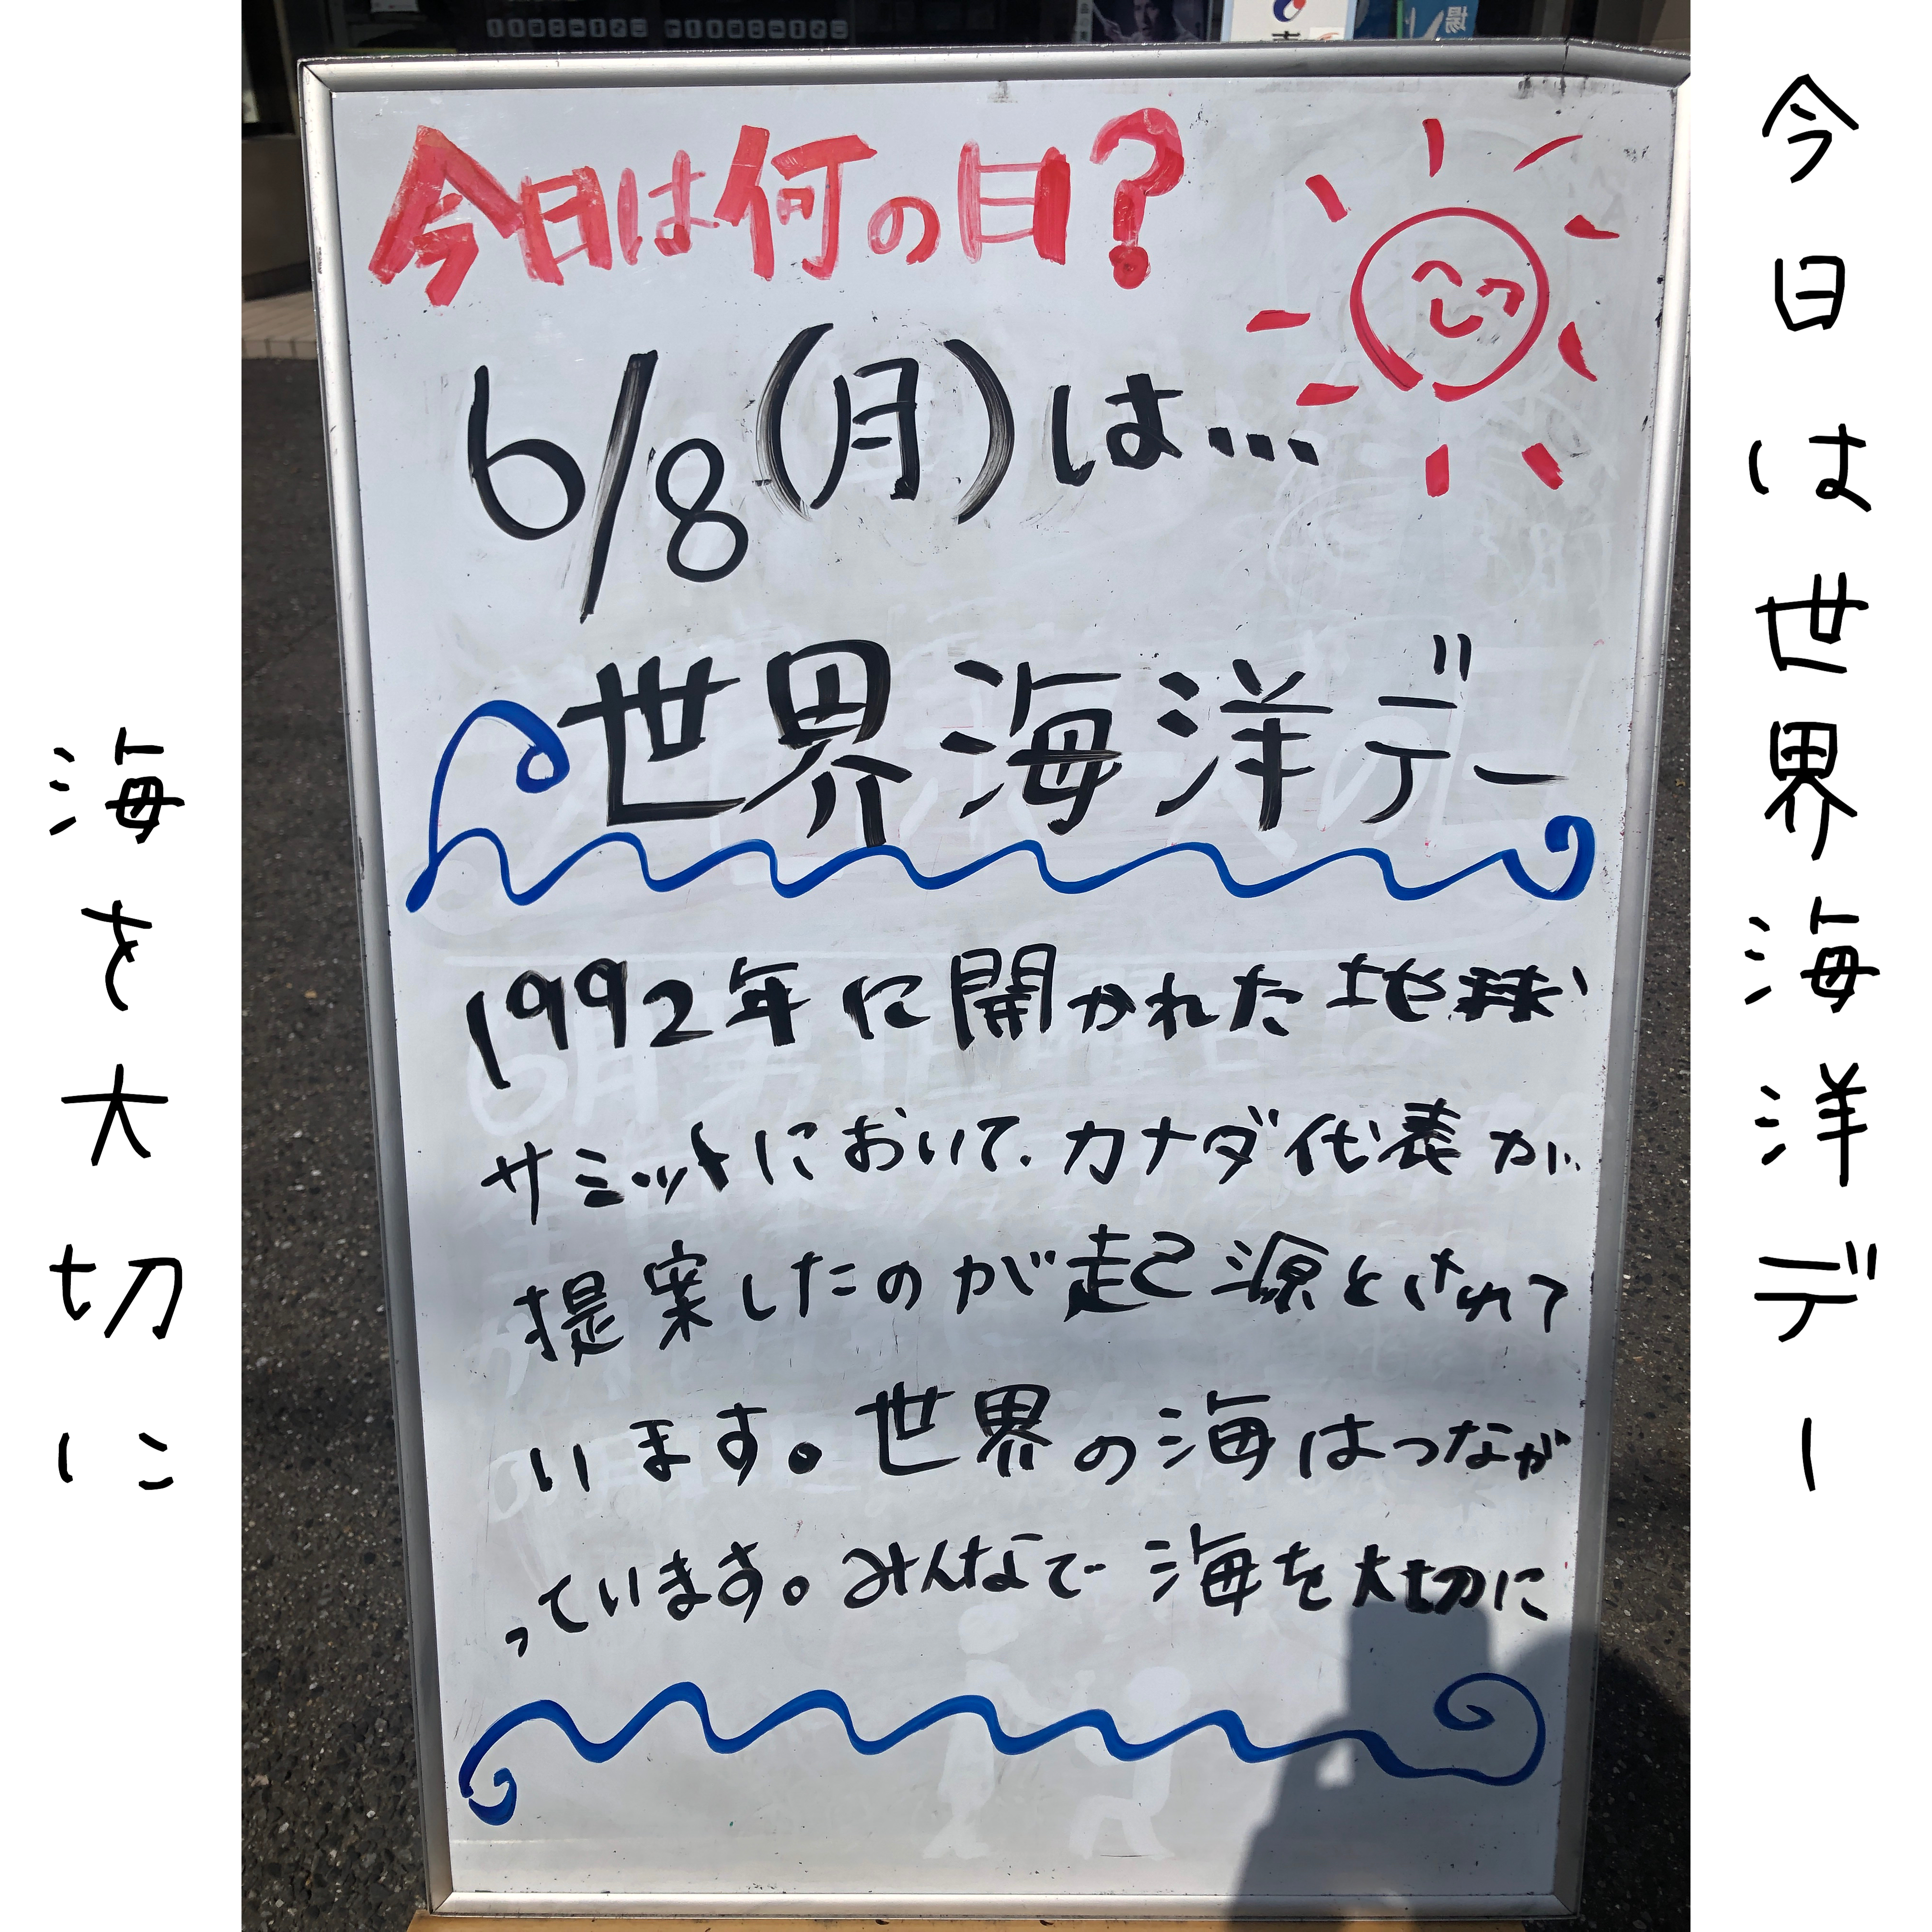 今日は世界海洋デー
今日は何の日?
6/8(月)は…
世界海洋デー
1992年に開かれた地球
サミットにおいて、カナダ代表が、
提案したのが起源とされて
います。世界の海はつなが
っています。みんなで海を大切に
海を大切に